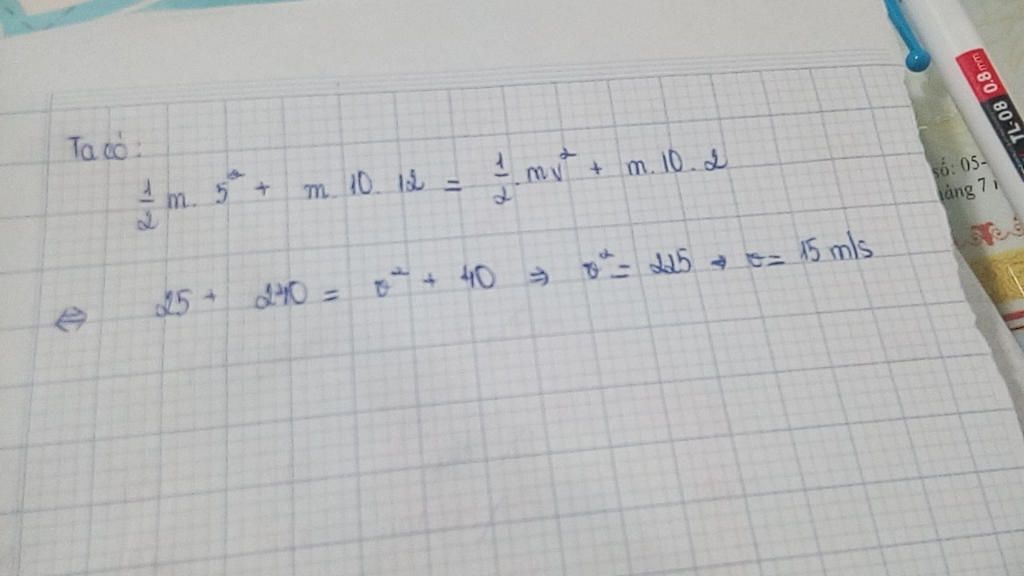 Ta có:
1/2 m. 5² + m. 10. 12 = 1/2. mv² + m. 10. 2
⇔ 25 + 240 = v² + 40 ⇒ v² = 225 ⇒ v = 15 m/s
TL-08 0.8mm
số: 05-
háng 7